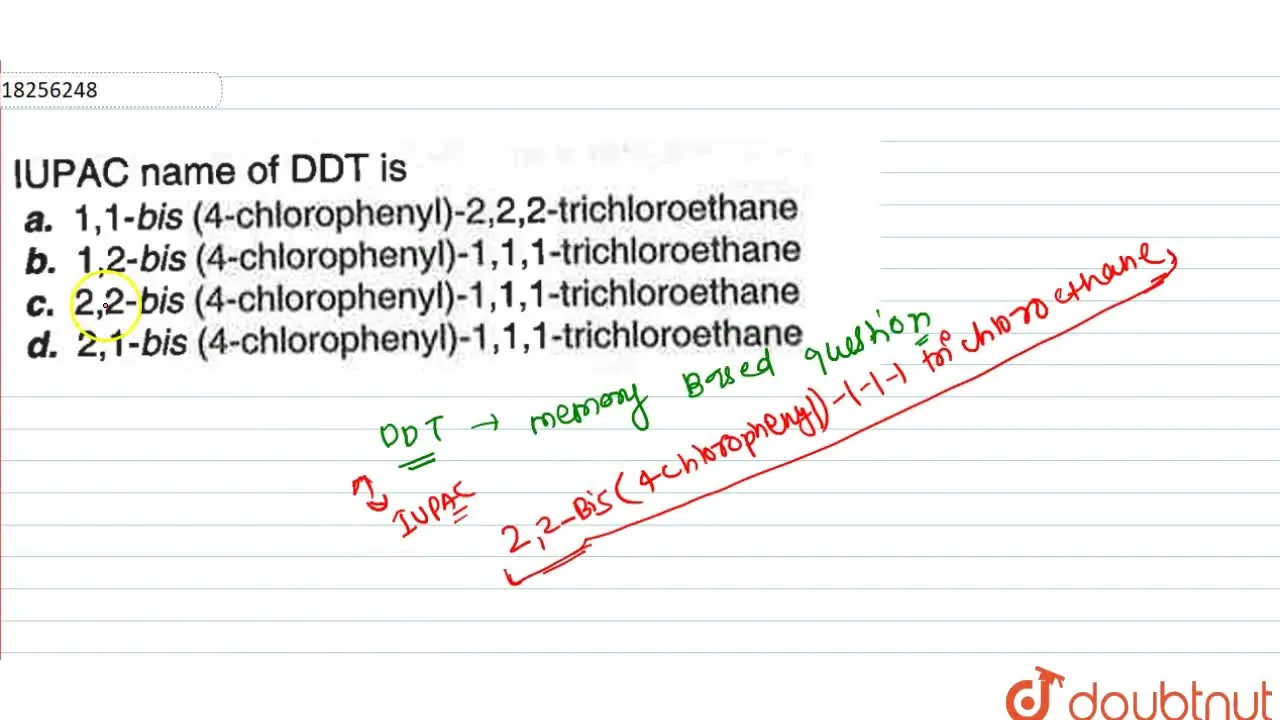 18256248
IUPAC name of DDT is
a. 1,1-bis (4-chlorophenyl)-2,2,2-trichloroethane
b. 1,2-bis (4-chlorophenyl)-1,1,1-trichloroethane
c. 2,2-bis (4-chlorophenyl)-1,1,1-trichloroethane
d. 2,1-bis (4-chlorophenyl)-1,1,1-trichloroethane
DDT → memory Based question
IUPAC
2,2-Bis(4-chlorophenyl)-1-1-1 trichloroethane,
doubtnut